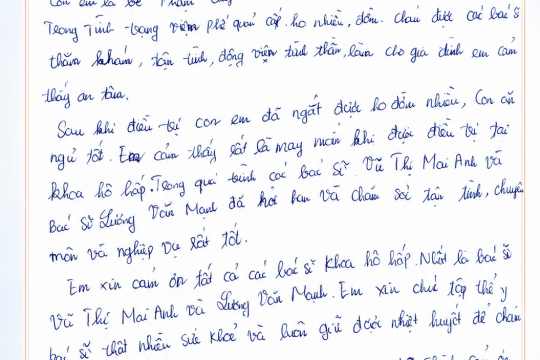 Con em là bé Phạm
Trong Tình trạng viêm phế quản cấp. ho nhiều, đờm. cháu được các bác sĩ
thăm khám, tận tình, động viện tinh thần, làm cho gia đình em cảm
thấy an tâm.
Sau khi điều trị con em đã ngắt được ho đờm nhiều, Con ăn
ngủ tốt. Em cảm thấy rất là may mắn khi được điều trị tại
khoa hô hấp. Trong quá trình các bác sĩ Vũ Thị Mai Anh và
Bác sĩ Lương Văn Mạnh đã hỏi han và chăm sóc tận tình, chuyên
môn và nghiệp vụ rất tốt.
Em xin cảm ơn tất cả các bác sĩ khoa hô hấp. Nhất là bác sĩ
Vũ Thị Mai Anh và Lương Văn Mạnh. Em xin chúc tập thể y
bác sĩ thật nhiều sức khoẻ và luôn giữ được nhiệt huyết để chăm